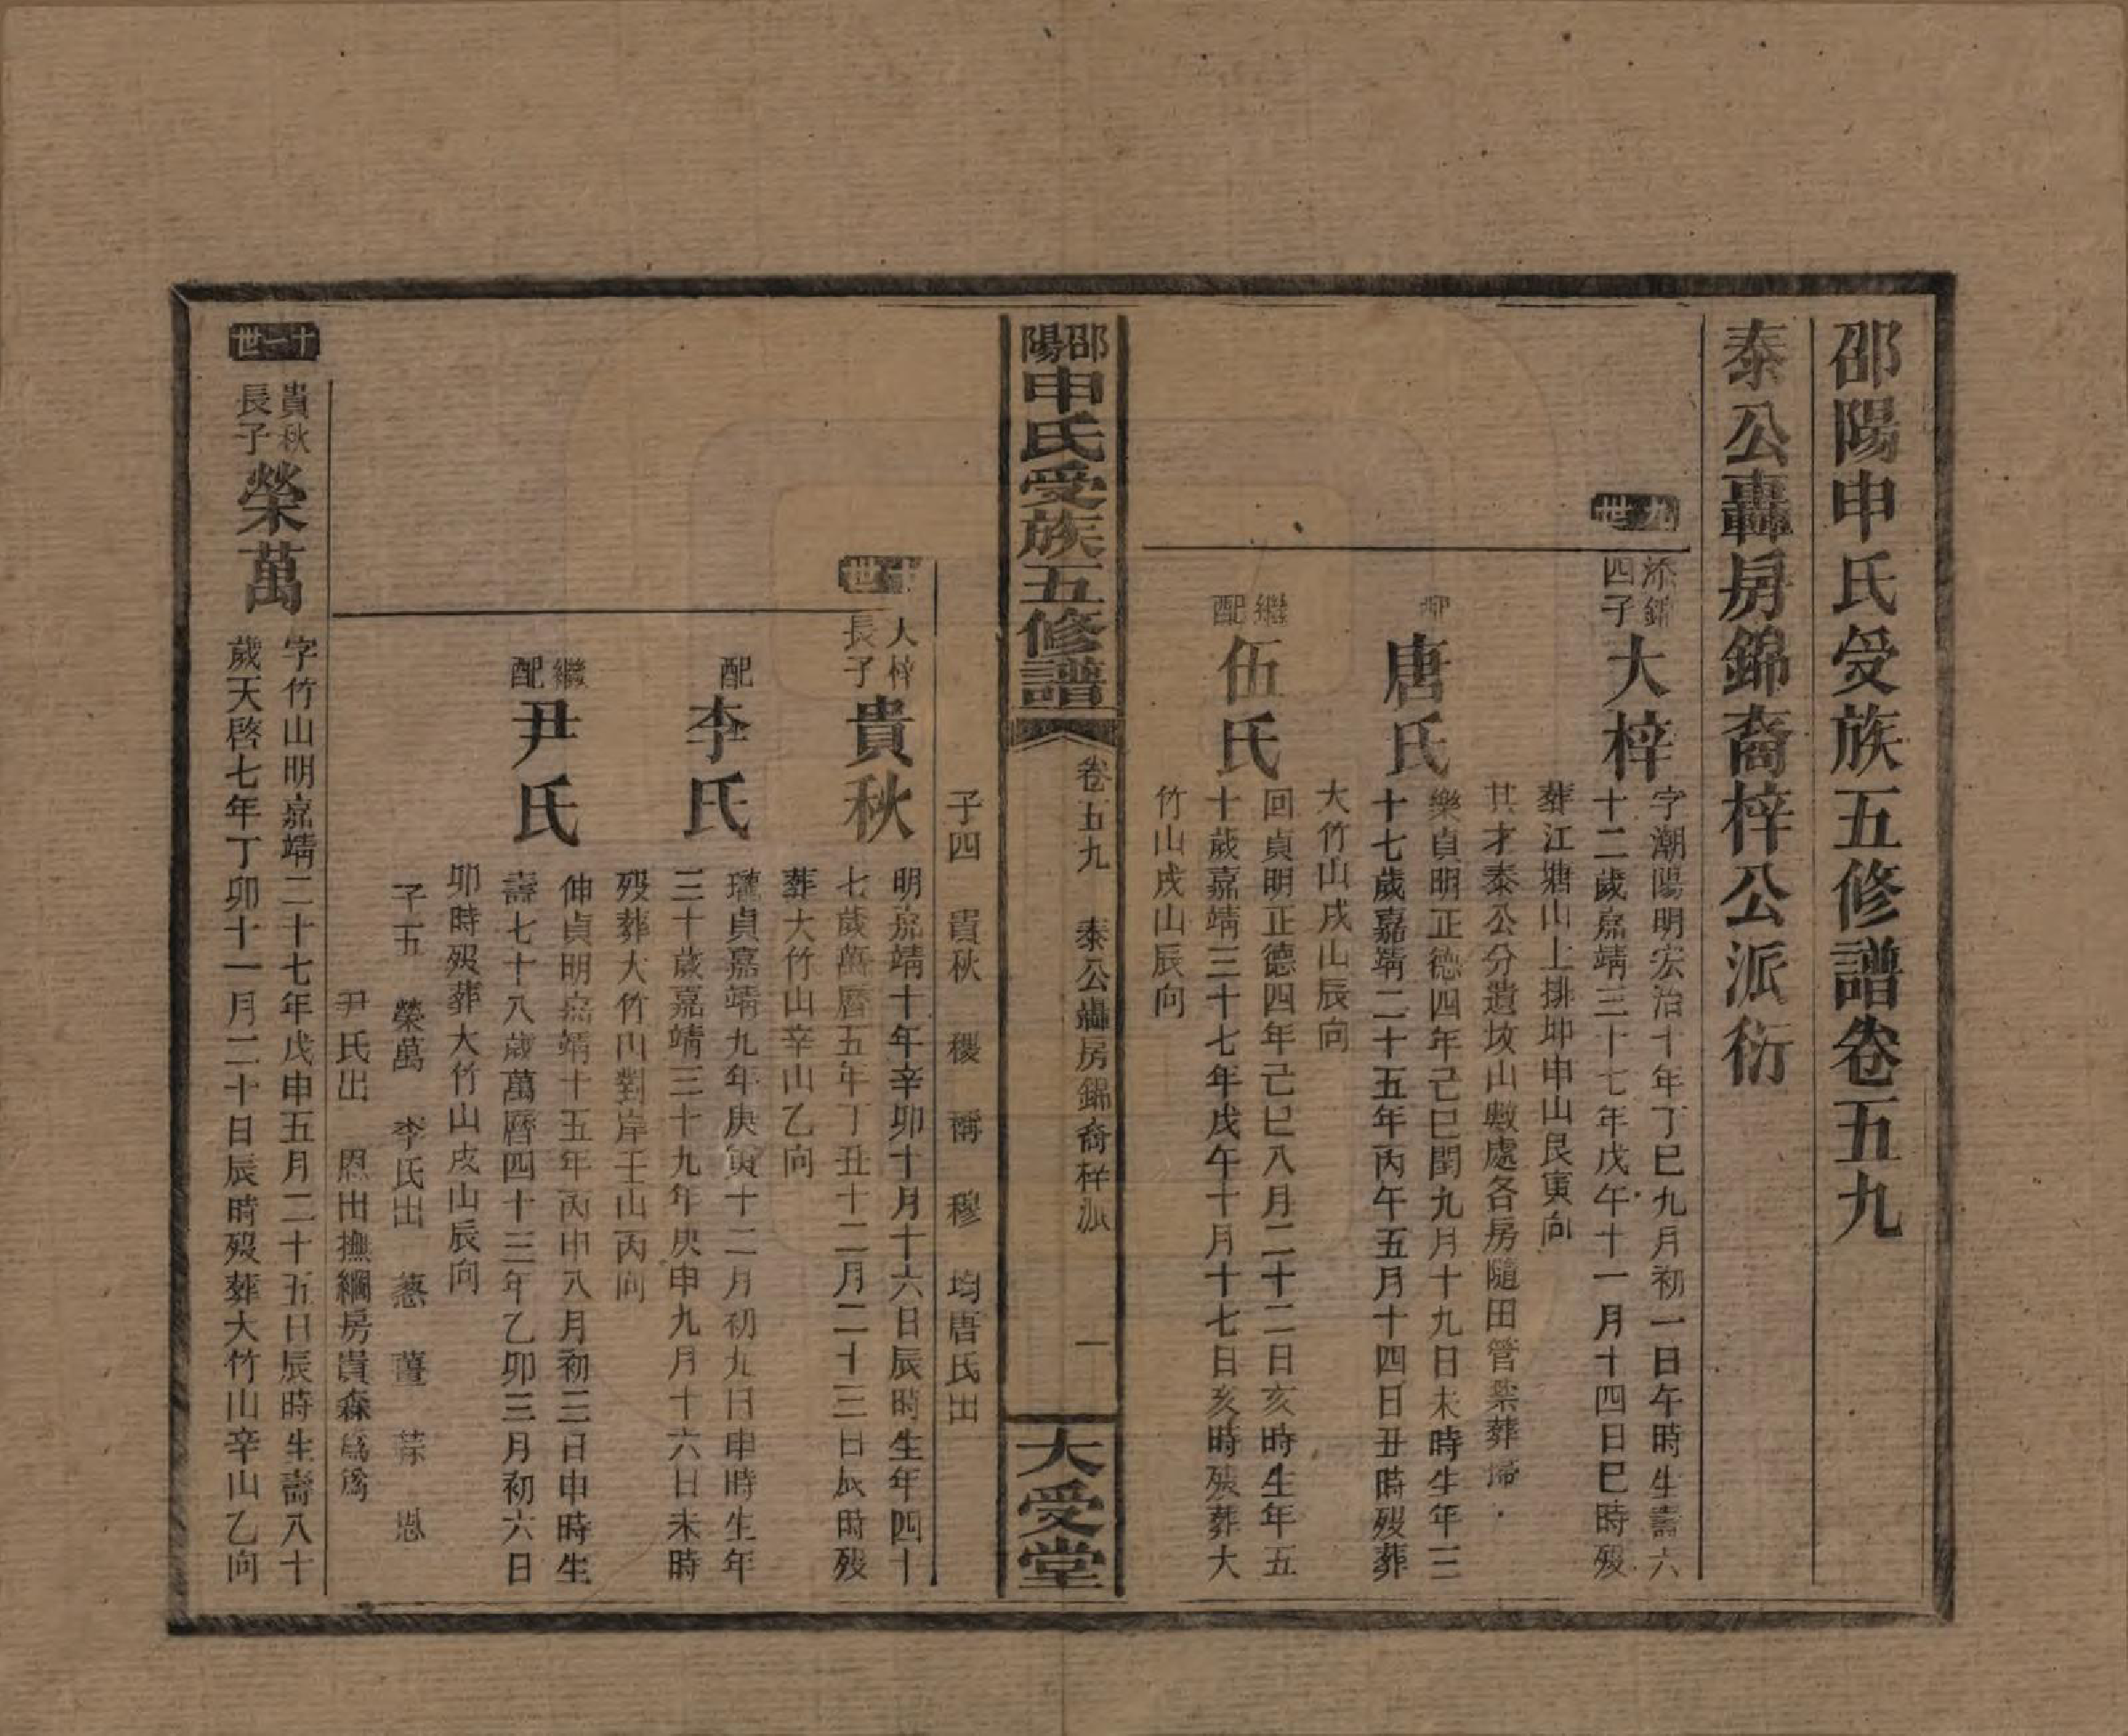 邵陽申氏受族五修譜卷五九
泰公轟房錦裔梓公派衍
九世
添錦四子
大梓
字潮陽明宏治十年丁巳九月初一日午時生壽六
十二歲嘉靖三十七年戊午十一月十四日巳時歿
葬江塘山上排坤申山艮寅向
其才泰公分遺坟山數處各房隨田管業葬掃
配
唐氏
樂貞明正德四年己巳閏九月十九日未時生年三
十七歲嘉靖二十五年丙午五月十四日丑時歿葬
大竹山戌山辰向
繼配
伍氏
回貞明正德四年己巳八月二十二日亥時生年五
十歲嘉靖三十七年戊午十月十七日亥時歿葬大
竹山戌山辰向
邵陽申氏受族五修譜
卷五九 泰公轟房錦裔梓派 一
大受堂
子四 貴秋 稷 稱 穆 均唐氏出
十世
大梓長子
貴秋
明嘉靖十年辛卯十月十六日辰時生年四十
七歲萬曆五年丁丑十二月二十三日辰時歿
葬大竹山辛山乙向
配
李氏
瓏貞嘉靖九年庚寅十二月初九日申時生年
三十歲嘉靖三十九年庚申九月十六日未時
歿葬大竹山對岸壬山丙向
繼配
尹氏
伸貞明嘉靖十五年丙申八月初三日申時生
壽七十八歲萬曆四十三年乙卯三月初六日
卯時歿葬大竹山戌山辰向
子五 榮萬 李氏出 蔥 薑 蒜 恩
尹氏出 恩出撫綱房貴森爲爲
十一世
貴秋長子
榮萬
字竹山明嘉靖二十七年戊申五月二十五日辰時生壽八十
歲天啓七年丁卯十一月二十日辰時歿葬大竹山辛山乙向